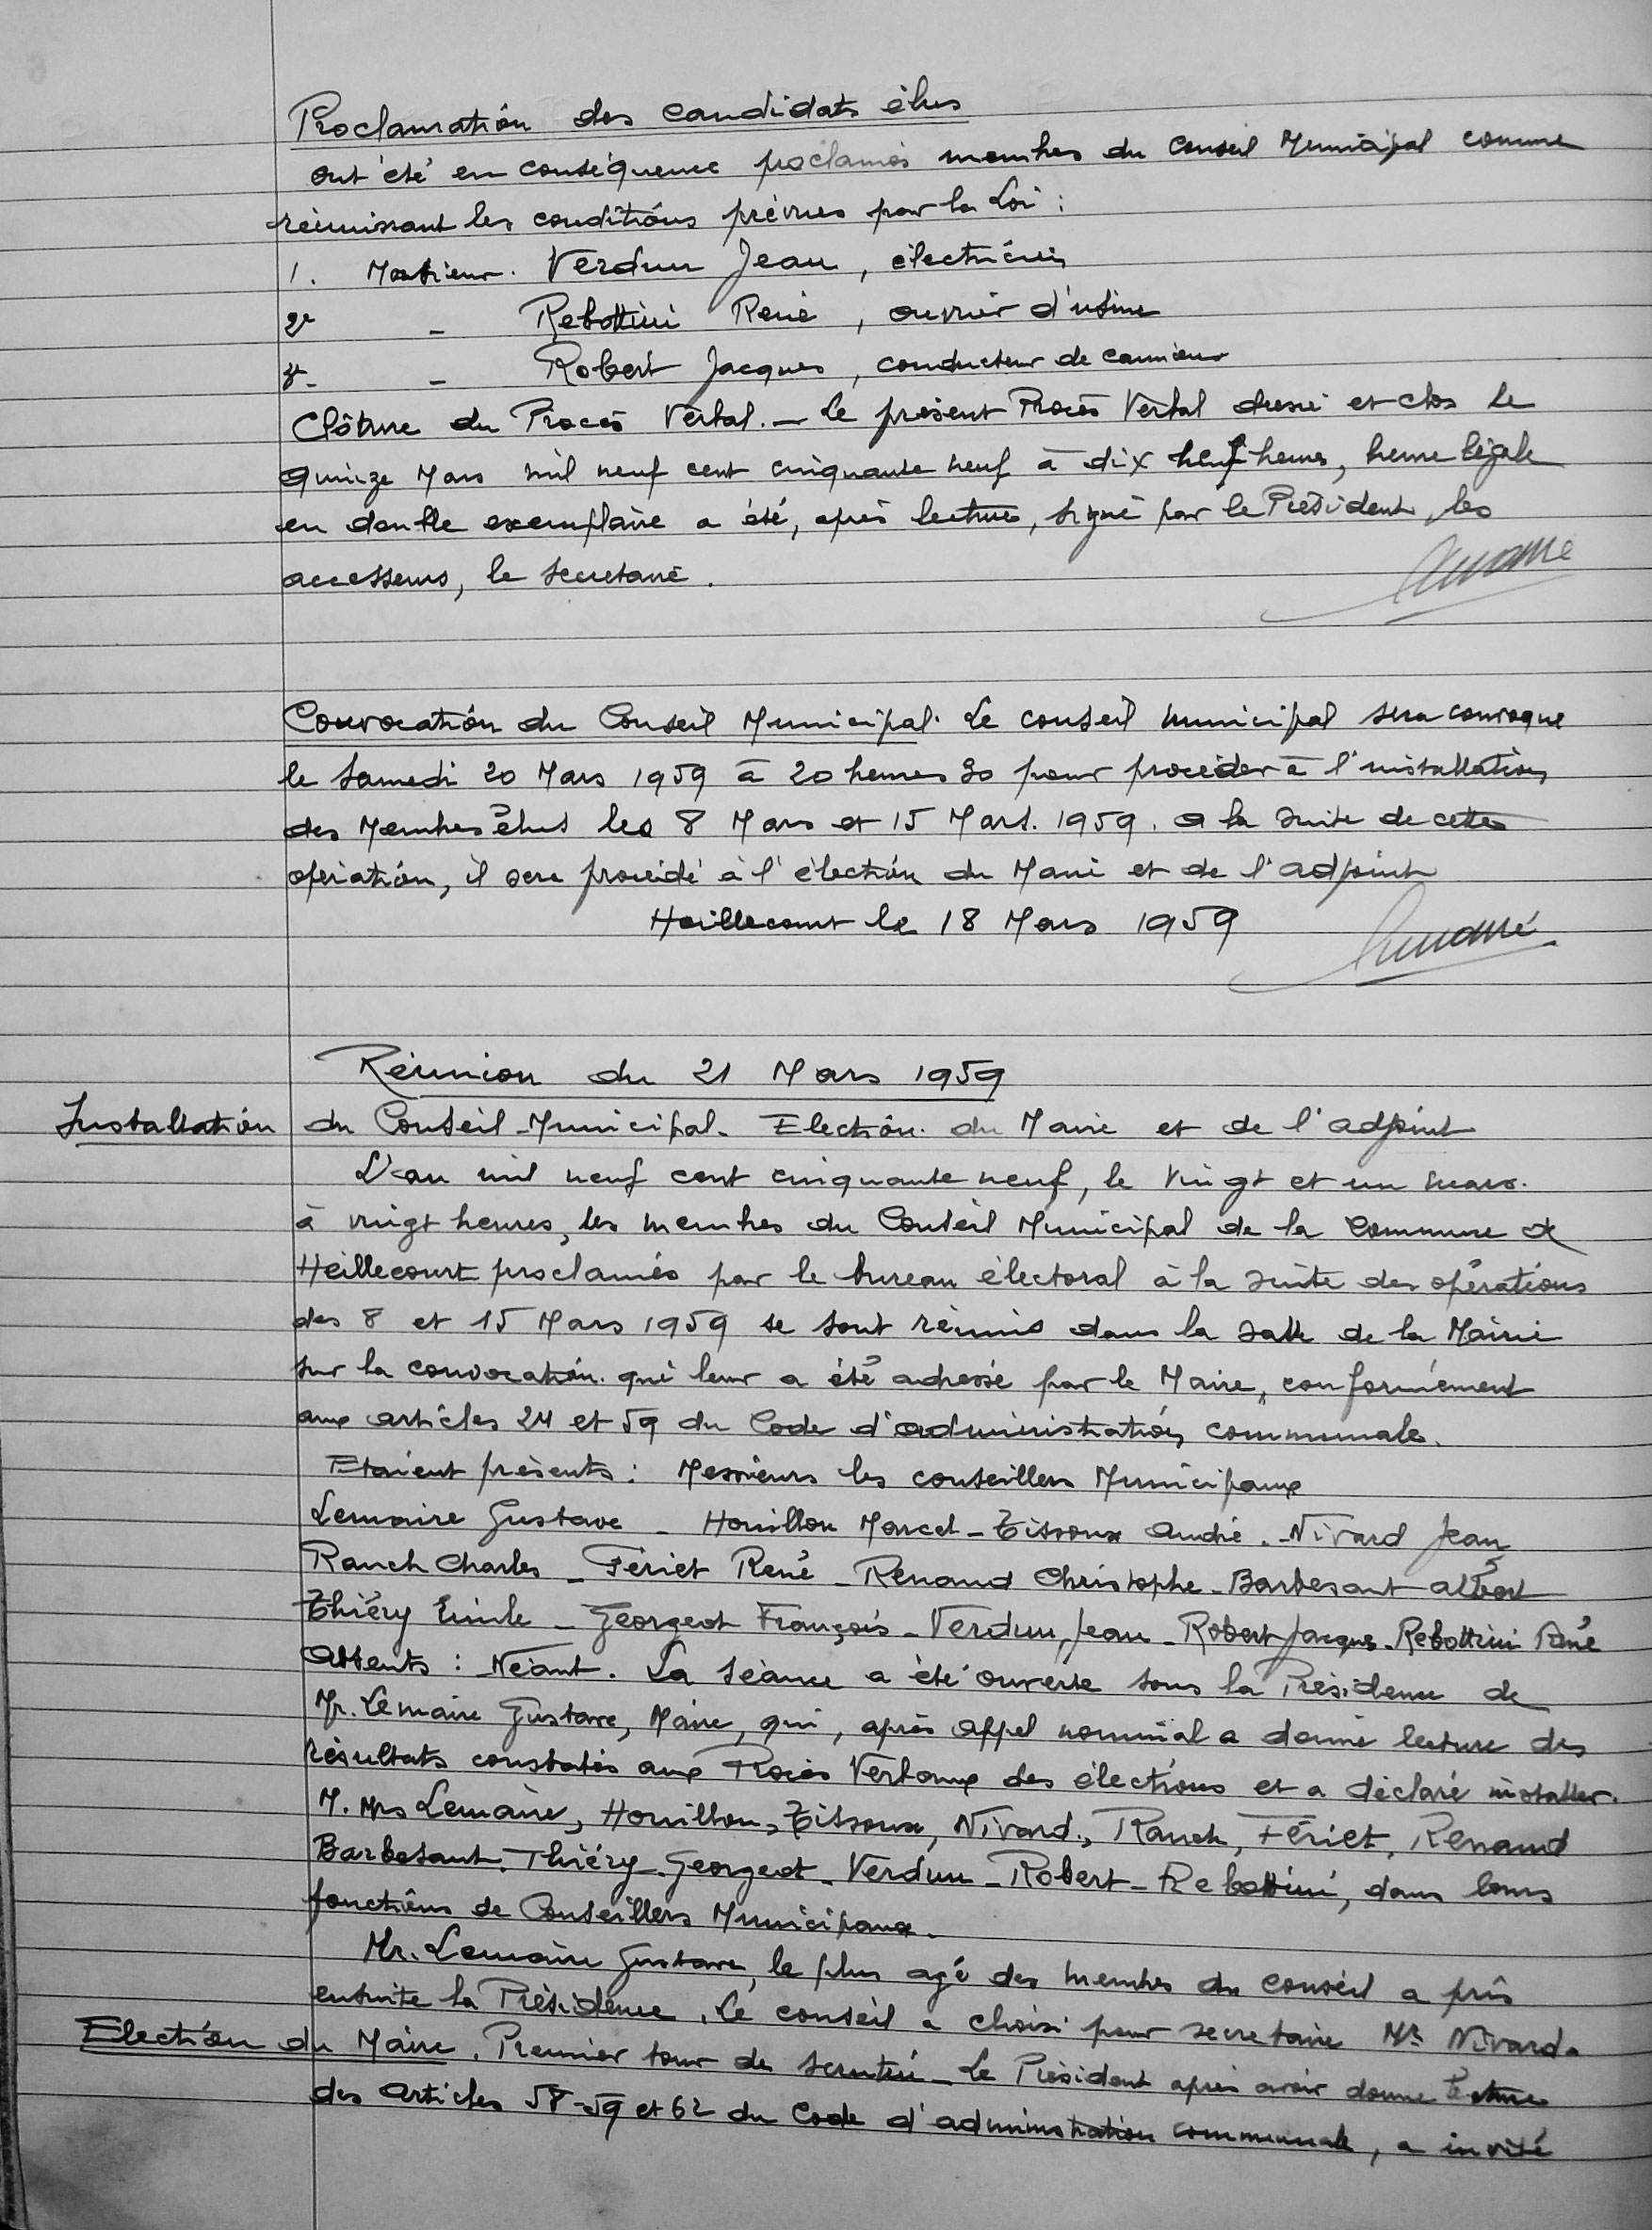 Proclamation des candidats élus
ont été en conséquence proclamés membres du Conseil Municipal comme
réunissant les conditions prévues par la Loi :
1. Monsieur. Verdun Jean, électricien
2e - Rebottini René, ouvrier d'usine
3e - Robert Jacques, conducteur de camions
Clôture du Procès Verbal. - Le présent Procès Verbal dressé et clos le
quinze Mars mil neuf cent cinquante neuf à dix neuf heures, heure légale
en double exemplaire a été, après lecture, signé par le Président, les
accesseurs, le secretaire.
Convocation du Conseil Municipal. Le conseil municipal sera convoqué
le Samedi 20 Mars 1959 à 20 heures 30 pour procéder à l'installation
des Membres élus les 8 Mars et 15 Mars. 1959. A la suite de cette
opération, il sera procédé à l'élection du Maire et de l'adjoint
Heillecourt le 18 Mars 1959
Réunion du 21 Mars 1959
Installation du Conseil Municipal. Election du Maire et de l'adjoint
L'an mil neuf cent cinquante neuf, le vingt et un mars.
à vingt heures, les membres du Conseil Municipal de la Commune de
Heillecourt proclamés par le bureau électoral à la suite des opérations
des 8 et 15 Mars 1959 se sont réunis dans la salle de la Mairie
sur la convocation qui leur a été adressé par le Maire, conformément
aux articles 24 et 59 du Code d'administration communale.
Etaient présents : Messieurs les conseillers Municipaux
Lemaire Gustave - Houillon Marcel - Tissoux André - Nivard Jean
Rauch Charles - Fériet René - Renaud Christophe - Barbesant Albert
Thiéry Emile - Georgeot François - Verdun Jean - Robert Jacques - Rebottini René
Absents : Néant. La séance a été ouverte sous la Présidence de
Mr. Lemaire Gustave, Maire, qui, après appel nominal a donné lecture des
résultats constatés aux Procès Verbaux des élections et a déclaré installer.
M. Mrs Lemaire, Houillon, Tissoux, Nivard, Rauch, Fériet, Renaud
Barbesant. Thiéry - Georgeot - Verdun - Robert - Rebottini, dans leurs
fonctions de Conseillers Municipaux.
Mr. Lemaire Gustave, le plus agé des membres du conseil a pris
ensuite la Présidence. Le conseil a choisi pour secretaire Mr Nivard.
Election du Maire. Premier tour de scrutin - Le Président après avoir donné lecture
des articles 58-59 et 62 du Code d'administration communale, a invité